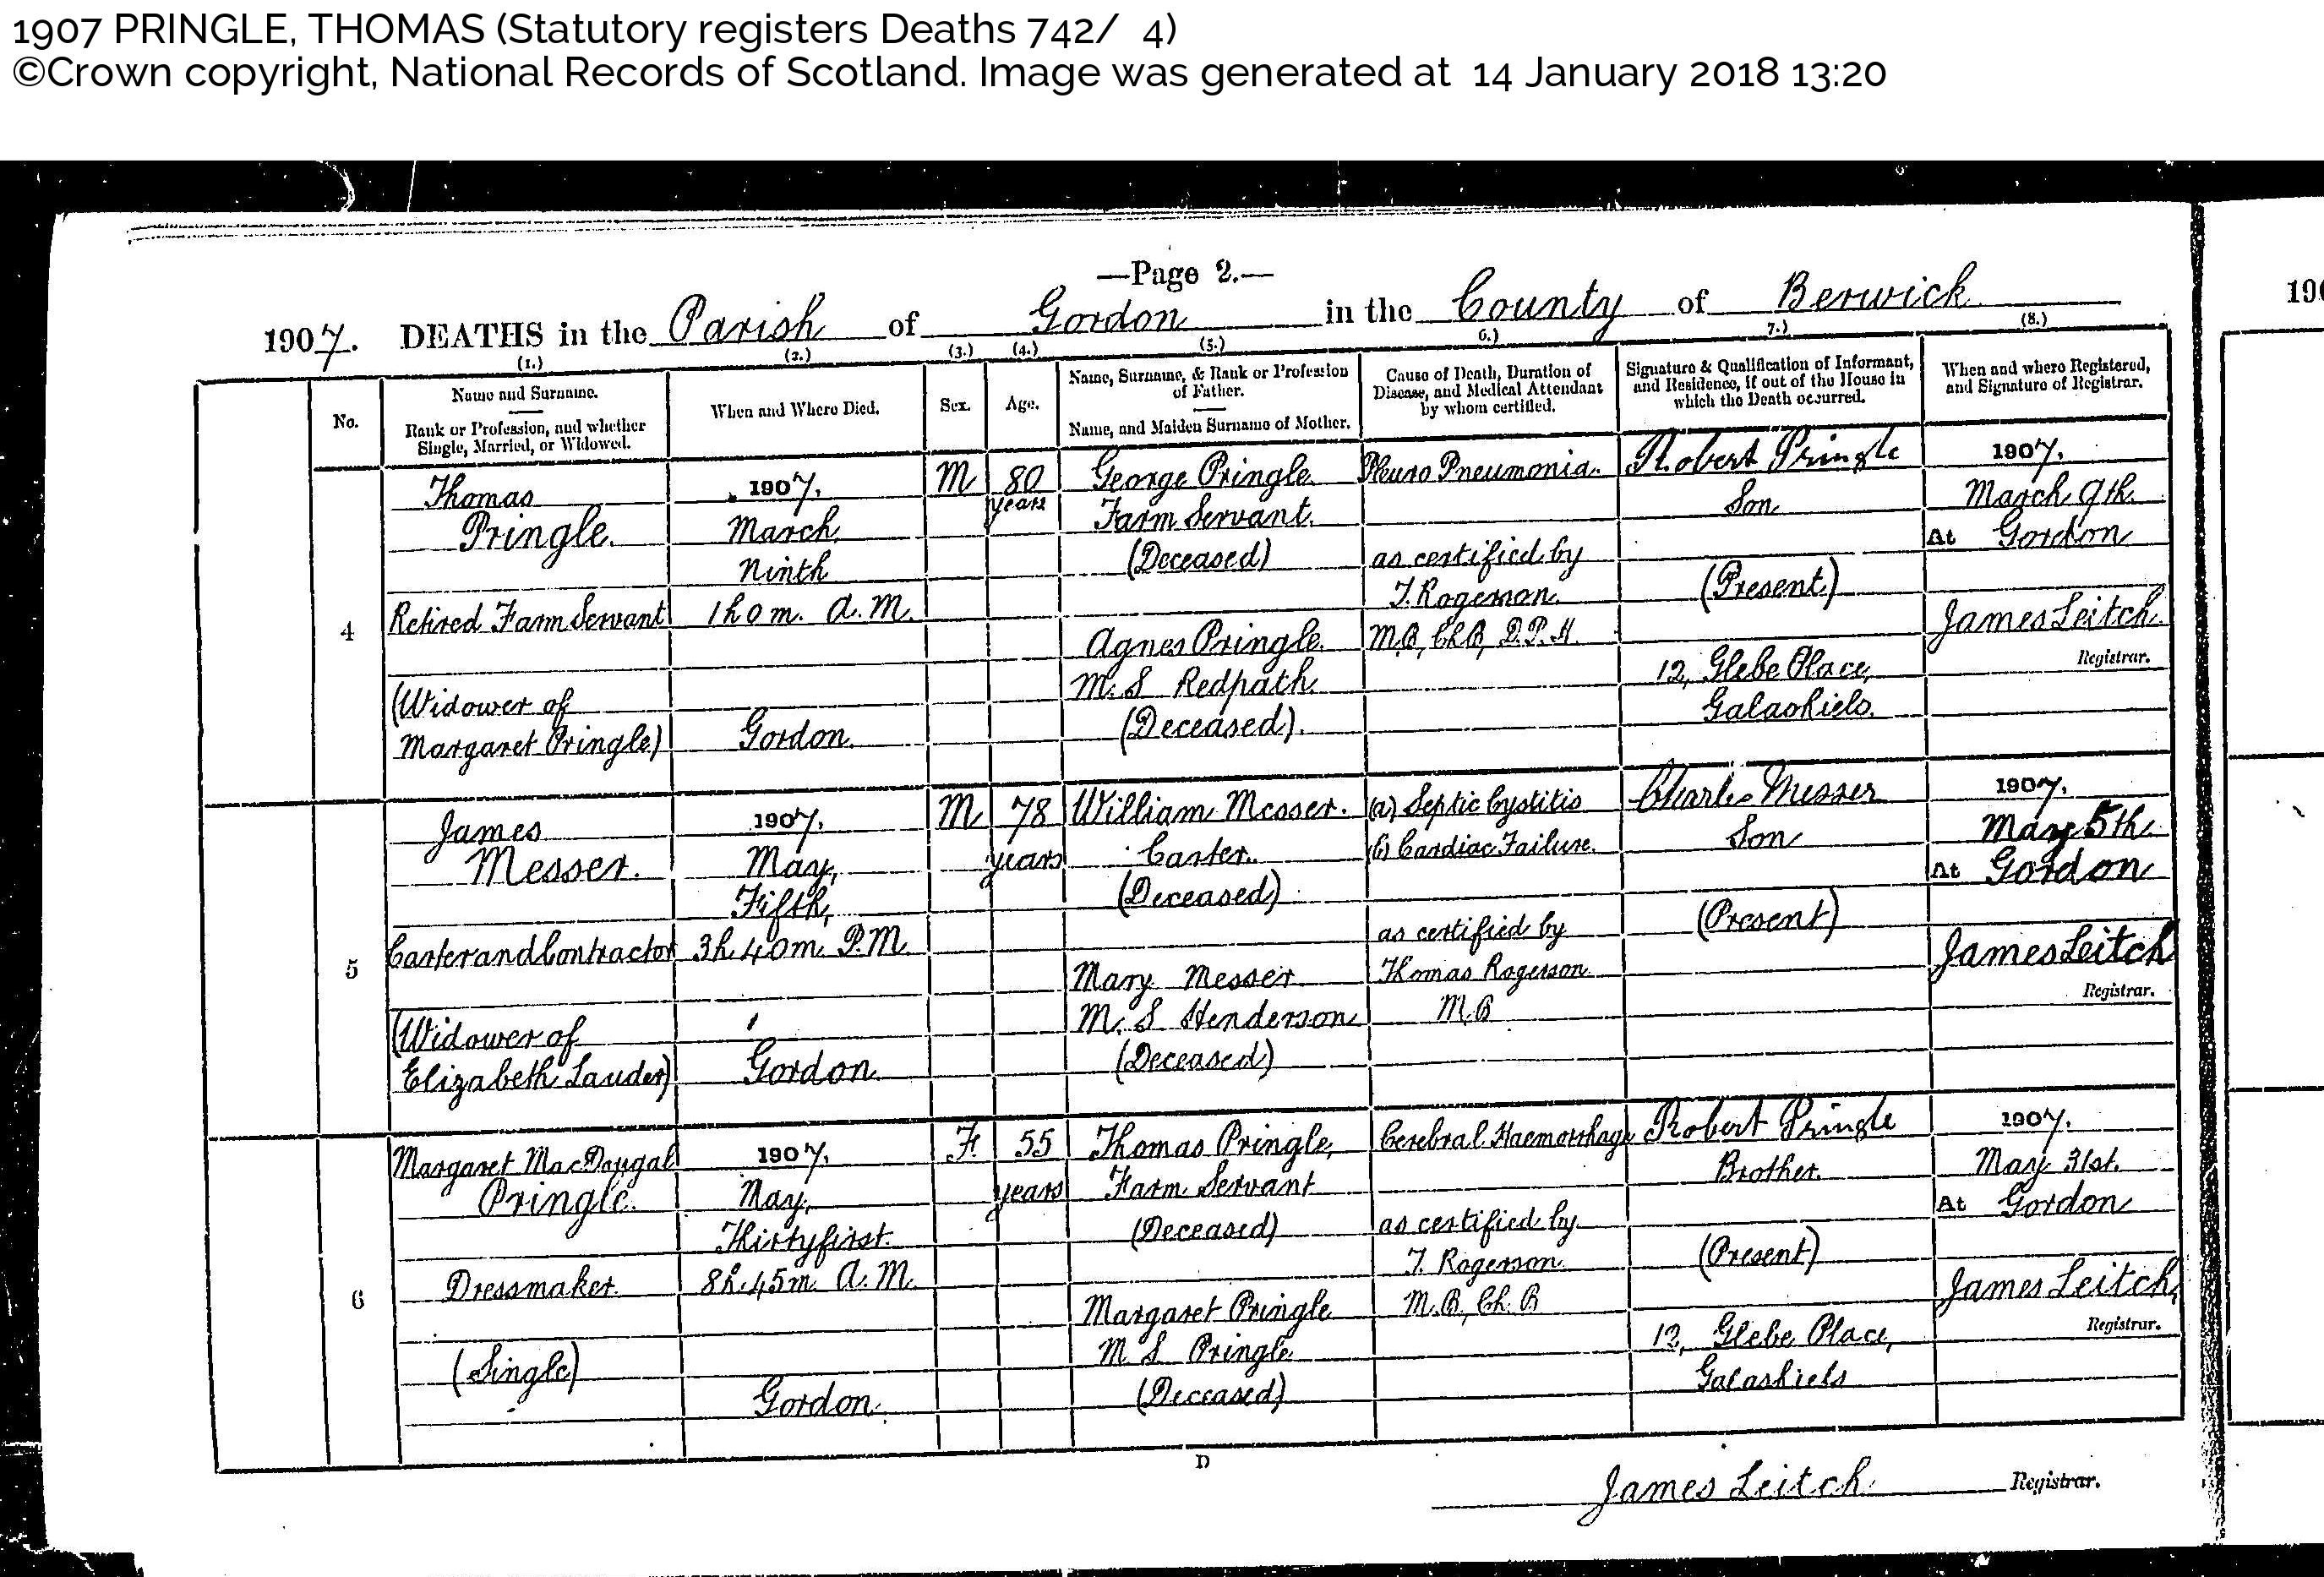 1907 PRINGLE, THOMAS (Statutory registers Deaths 742/ 4)
©Crown copyright, National Records of Scotland. Image was generated at 14 January 2018 13:20
—Page 2.—
1907. DEATHS in the Parish of Gordon in the County of Berwick
190
(1.) (2.) (3.) (4.) (5.) 6.) 7.) (8.)
No.
Name and Surname.
Rank or Profession, and whether
Single, Married, or Widowed.
When and Where Died.
Sex.
Age.
Name, Surname, & Rank or Profession
of Father.
Name, and Maiden Surname of Mother.
Cause of Death, Duration of
Disease, and Medical Attendant
by whom certified.
Signature & Qualification of Informant,
and Residence, if out of the House in
which the Death occurred.
When and where Registered,
and Signature of Registrar.
4
Thomas
Pringle.
Retired Farm Servant
(Widower of
Margaret Pringle)
1907.
March,
Ninth
1h 0m. A.M.
Gordon.
M
80
years
George Pringle
Farm Servant.
(Deceased)
Agnes Pringle.
M.S Redpath.
(Deceased).
Pleuro Pneumonia.
as certified by
T. Rogerson.
M.B, Ch.B, D.P.H.
Robert Pringle
Son
(Present)
12, Glebe Place,
Galashiels.
1907.
March 9th.
At Gordon
James Leitch.
Registrar.
5
James
Messer.
Carter and Contractor
(Widower of
Elizabeth Lauder)
1907.
May,
Fifth,
3h 40m P.M.
Gordon.
M
78
years
William Messer.
Carter.
(Deceased)
Mary Messer
M. S Henderson
(Deceased)
(a) Septic Cystitis
(b) Cardiac Failure.
as certified by
Thomas Rogerson
M.B
Charles Messer
Son
(Present)
1907.
May 5th
At Gordon
James Leitch
Registrar.
6
Margaret MacDougal
Pringle.
Dressmaker.
(Single)
1907.
May,
Thirtyfirst.
8h. 45m. A.M.
Gordon.
F.
55
years
Thomas Pringle,
Farm Servant
(Deceased)
Margaret Pringle
M S Pringle
(Deceased)
Cerebral Haemorrhage
as certified by
T. Rogerson
M.B, Ch. B
Robert Pringle
Brother.
(Present)
12, Glebe Place,
Galashiels
1907.
May 31st.
At Gordon
James Leitch,
Registrar.
D
James Leitch Registrar.